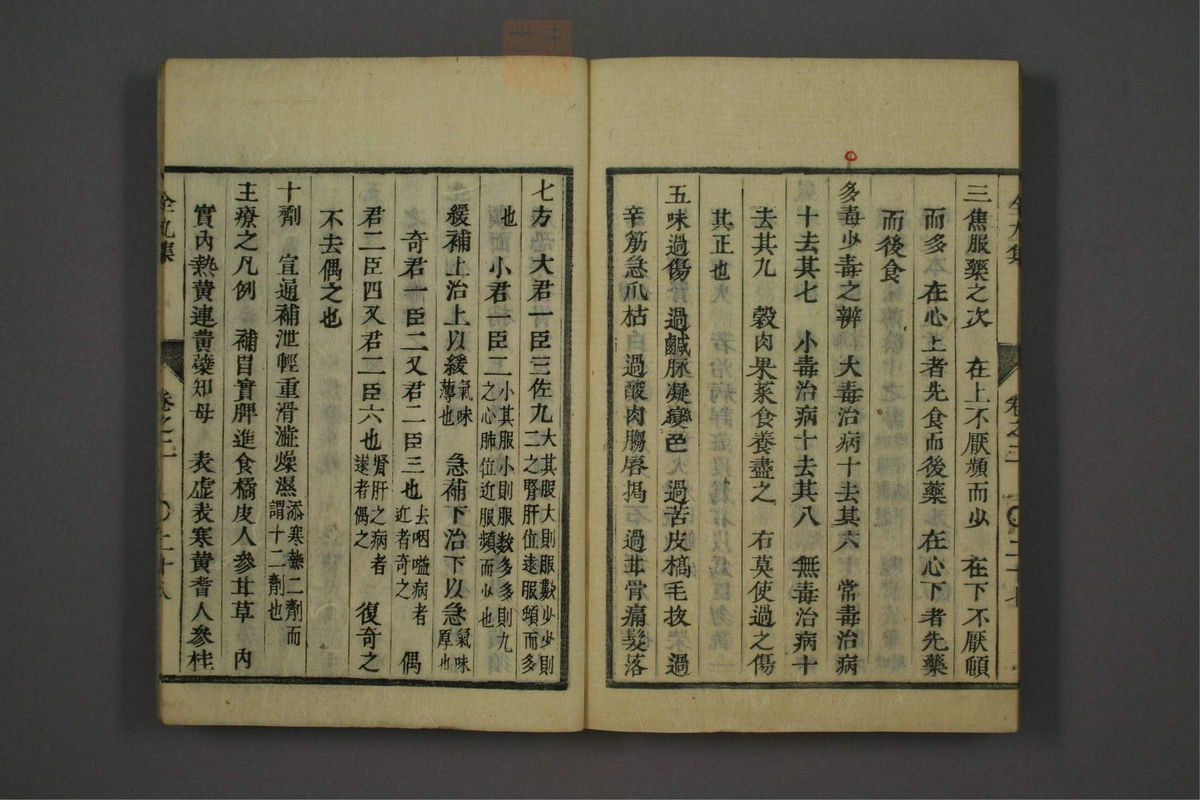 三焦服藥之次　在上不厭頻而少　在下不厭頓
而多　在心上者先食而後藥　在心下者先藥
而後食
多毒少毒之辨　大毒治病十去其六　常毒治病
十去其七　小毒治病十去其八　無毒治病十
去其九　穀肉果菜食養盡之　右莫使過之傷
其正也
五味過傷　過鹹脉凝變色　過苦皮槁毛拔　過
辛筋急爪枯　過酸肉䐢唇揭　過甘骨痛髮落
七方　大君一臣三佐九二之腎肝位遠服頓而多
大其服大則服數少少則
也　小君一臣二之心肺位近服頻而少也
小其服小則服数多多則九
緩補上治上以緩氣味薄也　急補下治下以急氣味厚也
奇君一臣二又君二臣三也去咽嗌病者近者奇之　偶
君二臣四又君二臣六也腎肝之病者遠者偶之　復奇之
不去偶之也
十劑　宣通補泄輕重滑澁燥濕添寒熱二劑而謂十二劑也
主療之凡例　補胃實脾進食橘皮人參甘草　内
實内熱黄連黄蘗知母　表虚表寒黄耆人參桂
全九集
卷之二
二十七
全九集
卷之二
二十八